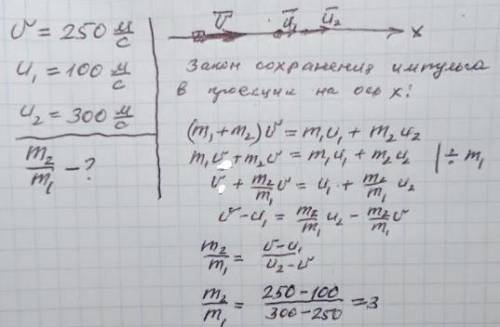 v = 250 м/с
u₁ = 100 м/с
u₂ = 300 м/с
m₂/m₁ - ?
v̅ u̅₁ u̅₂ x
Закон сохранения импульса
в проекции на ось x:
(m₁+m₂)v = m₁u₁ + m₂u₂
m₁v + m₂v = m₁u₁ + m₂u₂ | ÷ m₁
v + m₂/m₁ v = u₁ + m₂/m₁ u₂
v - u₁ = m₂/m₁ u₂ - m₂/m₁ v
m₂/m₁ = (v - u₁)/(u₂ - v)
m₂/m₁ = (250 - 100)/(300 - 250) = 3